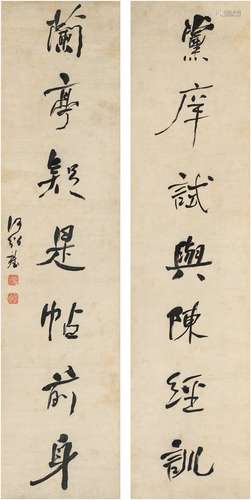 黨庠試與陳經訓
蘭亭疑是帖前身
何紹基